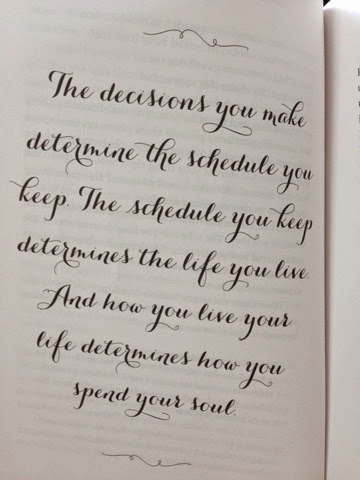 The decisions you make
determine the schedule you
keep. The schedule you keep
determines the life you live.
And how you live your
life determines how you
spend your soul.